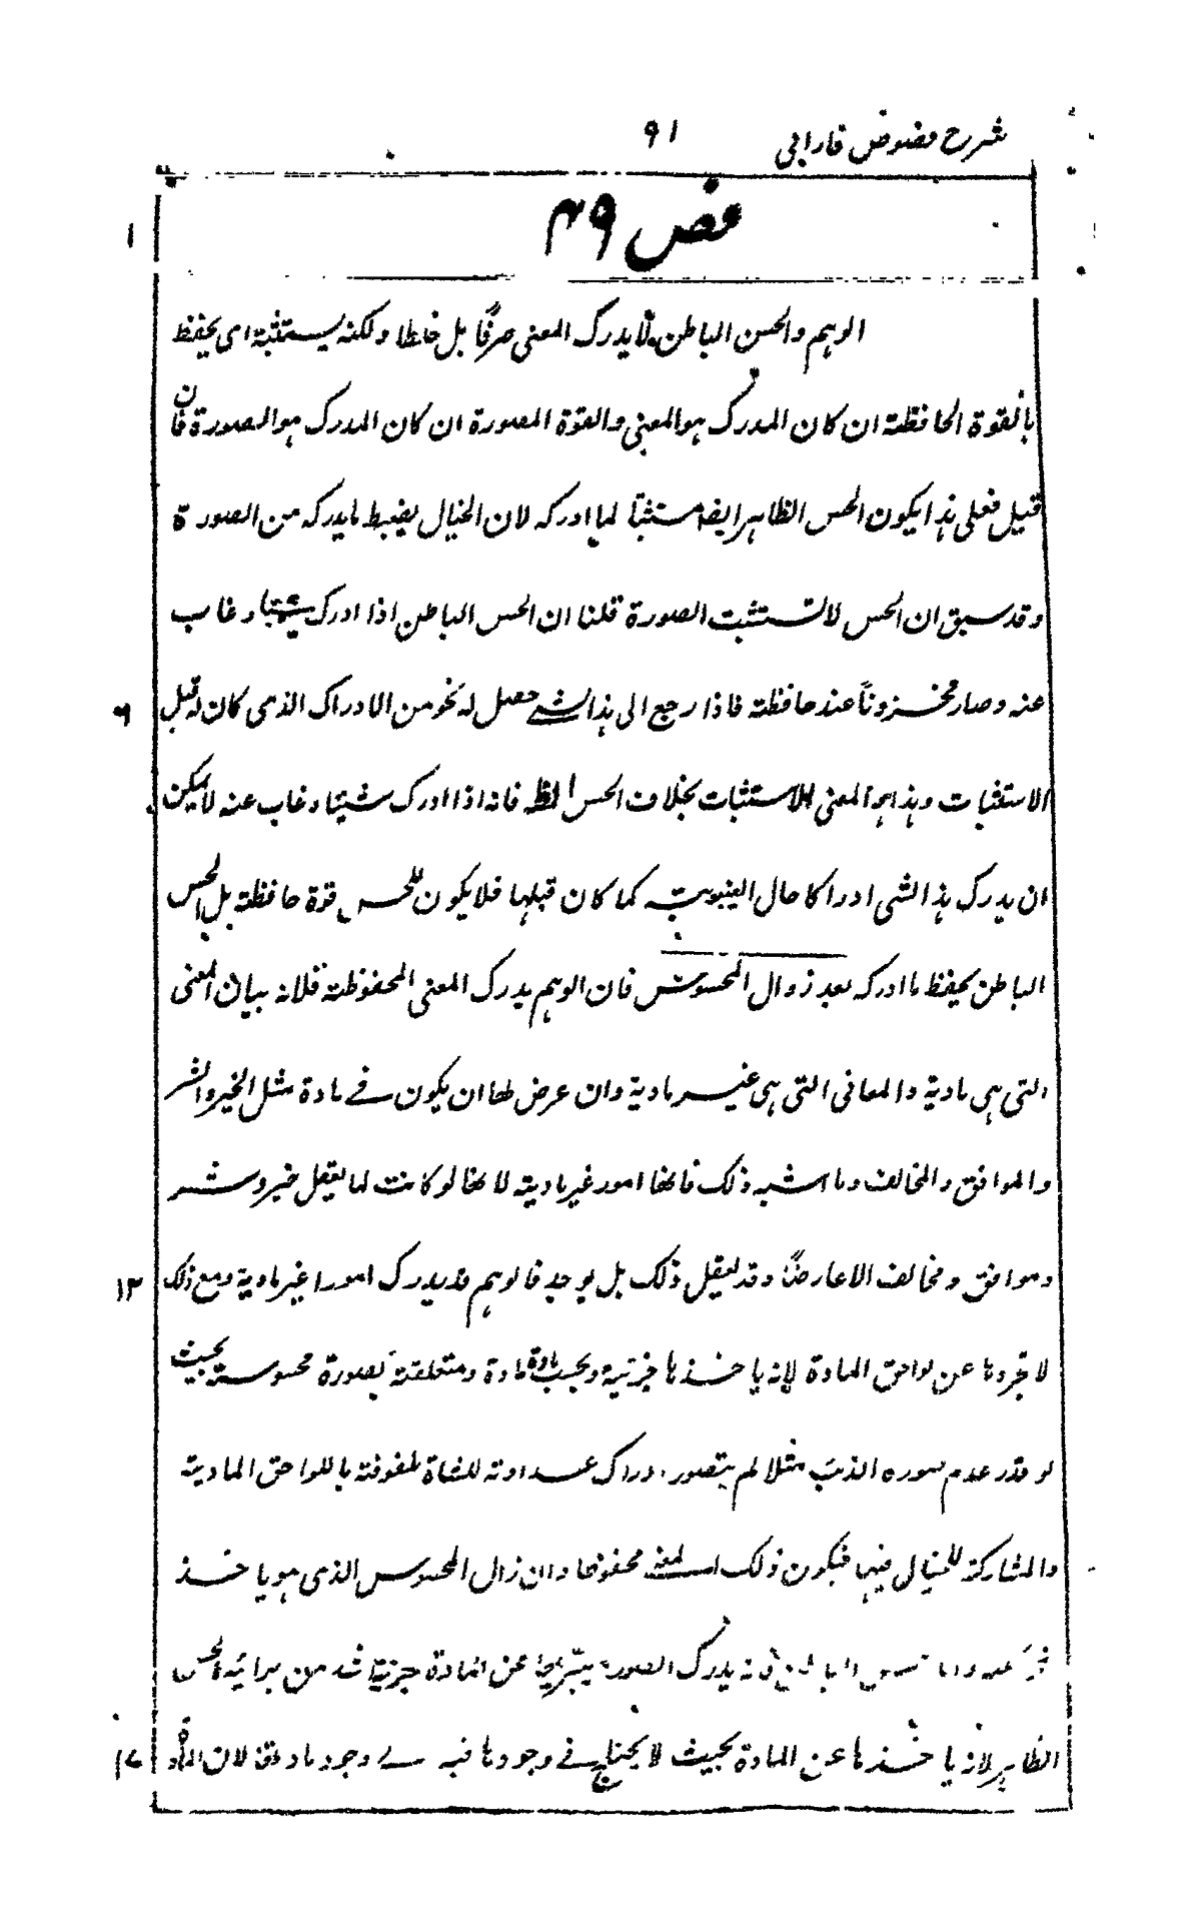 شرح فصوص فارابی ۹۱
فص ۴۹
۱
الوہم والحس الباطن لا یدرک المعنی صرفًا بل خلطا ولکنہ یستثبتہ ای یحفظ
بالقوۃ الحافظۃ ان کان المدرک ہو المعنی والقوۃ المصورۃ ان کان المدرک ہو الصورۃ فان
قیل فعلی ہذا یکون الحس الظاہر ایضا مستثبتا لما ادرکہ لان الخیال یضبط ما یدرکہ من الصورۃ
وقد سبق ان الحس لا تستثبت الصورۃ قلنا ان الحس الباطن اذا ادرک شیئا وغاب
عنہ وصار مخزوناً عند حافظتہ فاذا رجع الی ہذا الشے حصل لہ نحو من الادراک الذی کان لہ قبل
۶
الاستثبات وہذا ہو المعنی بالاستثبات بخلاف الحس الظ فانہ اذا ادرک شیئا وغاب عنہ لا یمکن
ان یدرک ہذا الشی ادراکا حال الغیبوبۃ کما کان قبلہا فلا یکون للحس قوۃ حافظۃ بل الحس
الباطن یحفظ ما ادرکہ بعد زوال المحسوس فان الوہم یدرک المعنی المحفوظۃ فلانہ بیان المعنی
التی ہی مادیۃ والمعانی التی ہی غیر مادیۃ وان عرض لها ان یکون فے مادۃ مثل الخیر والشر
والموافق والمخالف وما اشبہ ذلک فانها امور غیر مادیۃ لانها لو کانت لما یعقل خیر وشر
وموافق ومخالف الا عارضًا وقد یعقل ذلک بل یوجد فالوہم قد یدرک امورا غیر مادیۃ ومع ذلک
۱۲
لا تجردہا عن لواحق المادۃ لانہ یاخذہا جزئیۃ وبحسب مادۃ مادۃ ومتعلقۃ بصورۃ محسوسۃ بحیث
لو قدر عدم صورہ الذئب مثلا لم یتصور ادراک عداوتہ للشاۃ مکفوفۃ باللواحق المادیۃ
والمشارکۃ للخیال فیہا فیکون ذلک المعنے محفوظا وان زال المحسوس الذی ہو یاخذ
یدرک الصور عن المادۃ جزئیۃ اشد من الحس
الظاہر لانہ یاخذہا عن المادۃ بحیث لا یحتاج فے وجودہا فیہ لے وجود مادتہا لان المادۃ
۱۷